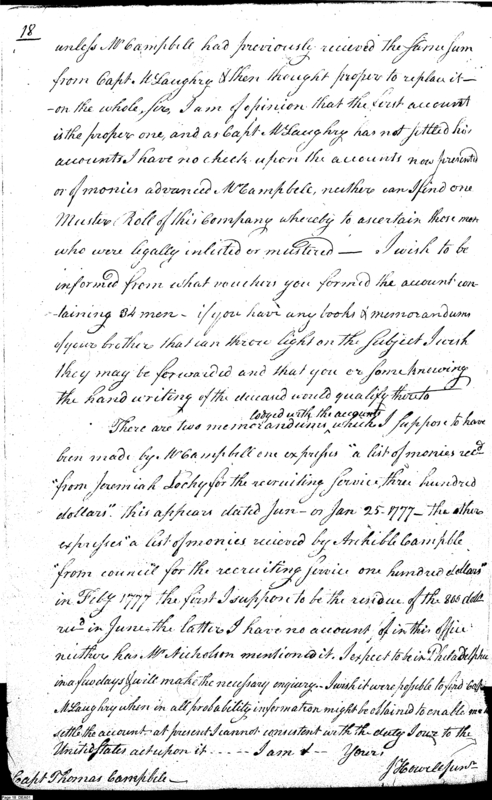 18
unless Mr Campbell had previously recieved the same sum
from Capt McLaughry & then thought proper to replace it —
- on the whole, sir, I am of opinion that the first account
is the proper one, and as Capt McLaughry has not settled his
accounts I have no check upon the accounts now presented
or of monies advanced Mr Campbell, neither can I find one
Muster Roll of this Company whereby to ascertain those men
who were legally inlisted or mustered — I wish to be
informed from what vouchers you formed the account con-
-taining 34 men - if you have any books & memorandums
of your brother that can throw light on the subject I wish
they may be forwarded and that you or some knowing
the hand writing of the deceased would qualify thereto
lodged with the accounts
There are two memorandums, which I suppose to have
been made by Mr Campbell one expresses "a list of monies recd
"from Jeremiah Lochy for the recruiting service, three hundred
dollars". this appears dated Jun - or Jan 25. 1777 - the other
expresses "a list of monies recieved by Archible Campble
"from council for the recruiting service one hundred dollars"
in Feby 1777 the first I suppose to be the residue of the 800 dolls
recd in June, the latter I have no account of in this office
neither has Mr Nicholson mentioned it. I expect to be in Philadelphia
in a few days & will make the necessary enquiry - I wish it were possible to find Capt
McLaughry when in all probability information might be obtained to enable me to
settle the account at present I cannot consistent with the duty I owe to the
United States act upon it - - - - - I am &- Yours
J Howell Junr
Capt Thomas Campbell —